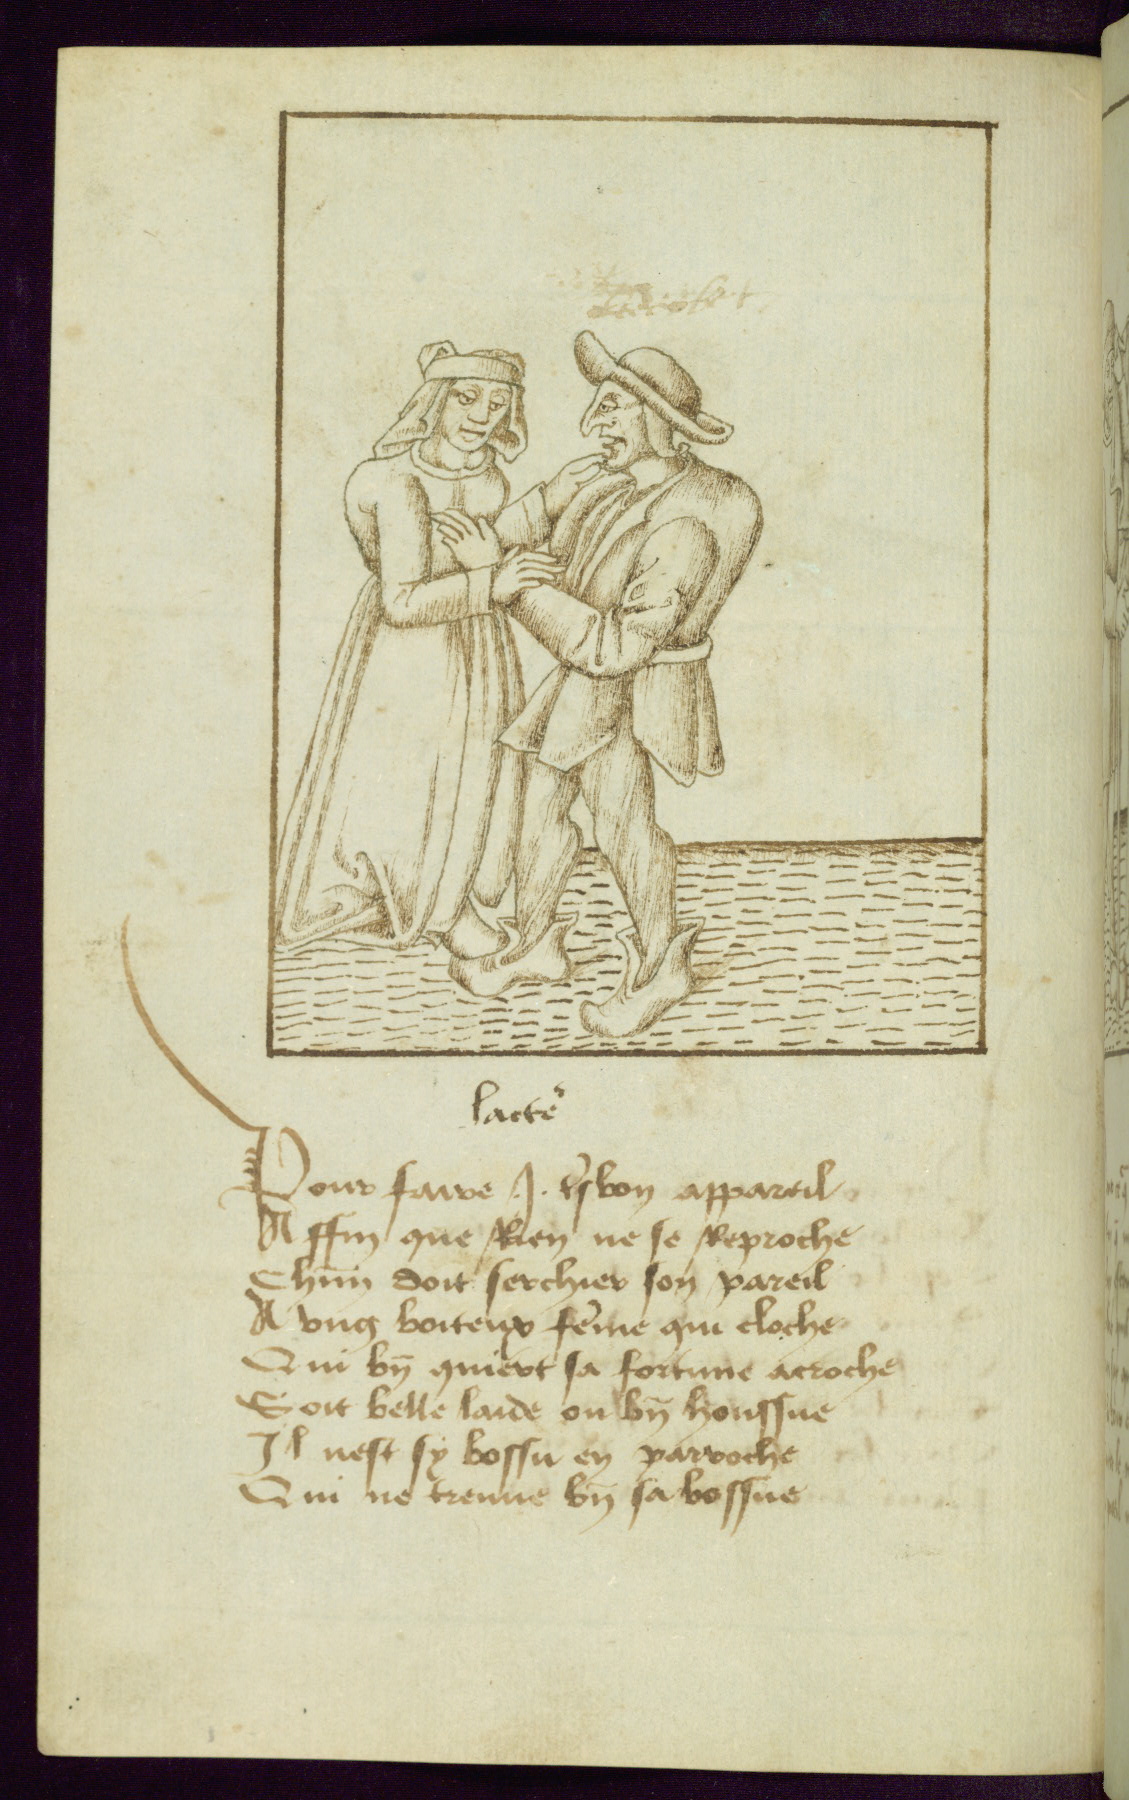 lacteʼ
Pour faire .J. tʼsbon appareil
Affin que Rien ne se Reproche
Chūn doit serchier son pareil
A vng boiteux fēme qui cloche
Qui bn̄ quiert sa fortune acroche
Soit belle laide ou bn̄ houssue
Il nest sy bossu en parroche
Qui ne treuue bn̄ sa bossue